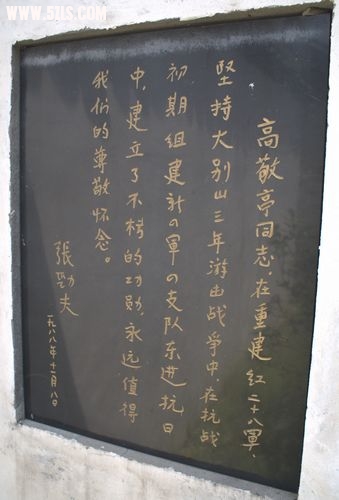 WWW.51LS.COM
高敬亭同志,在重建红二十八軍、
堅持大别山三年游击战争中,在抗战
初期组建新四軍四支队东进抗日
中,建立了不朽的功勋,永远值得
我们的尊敬怀念。
張勁夫
一九八八年十一月八日